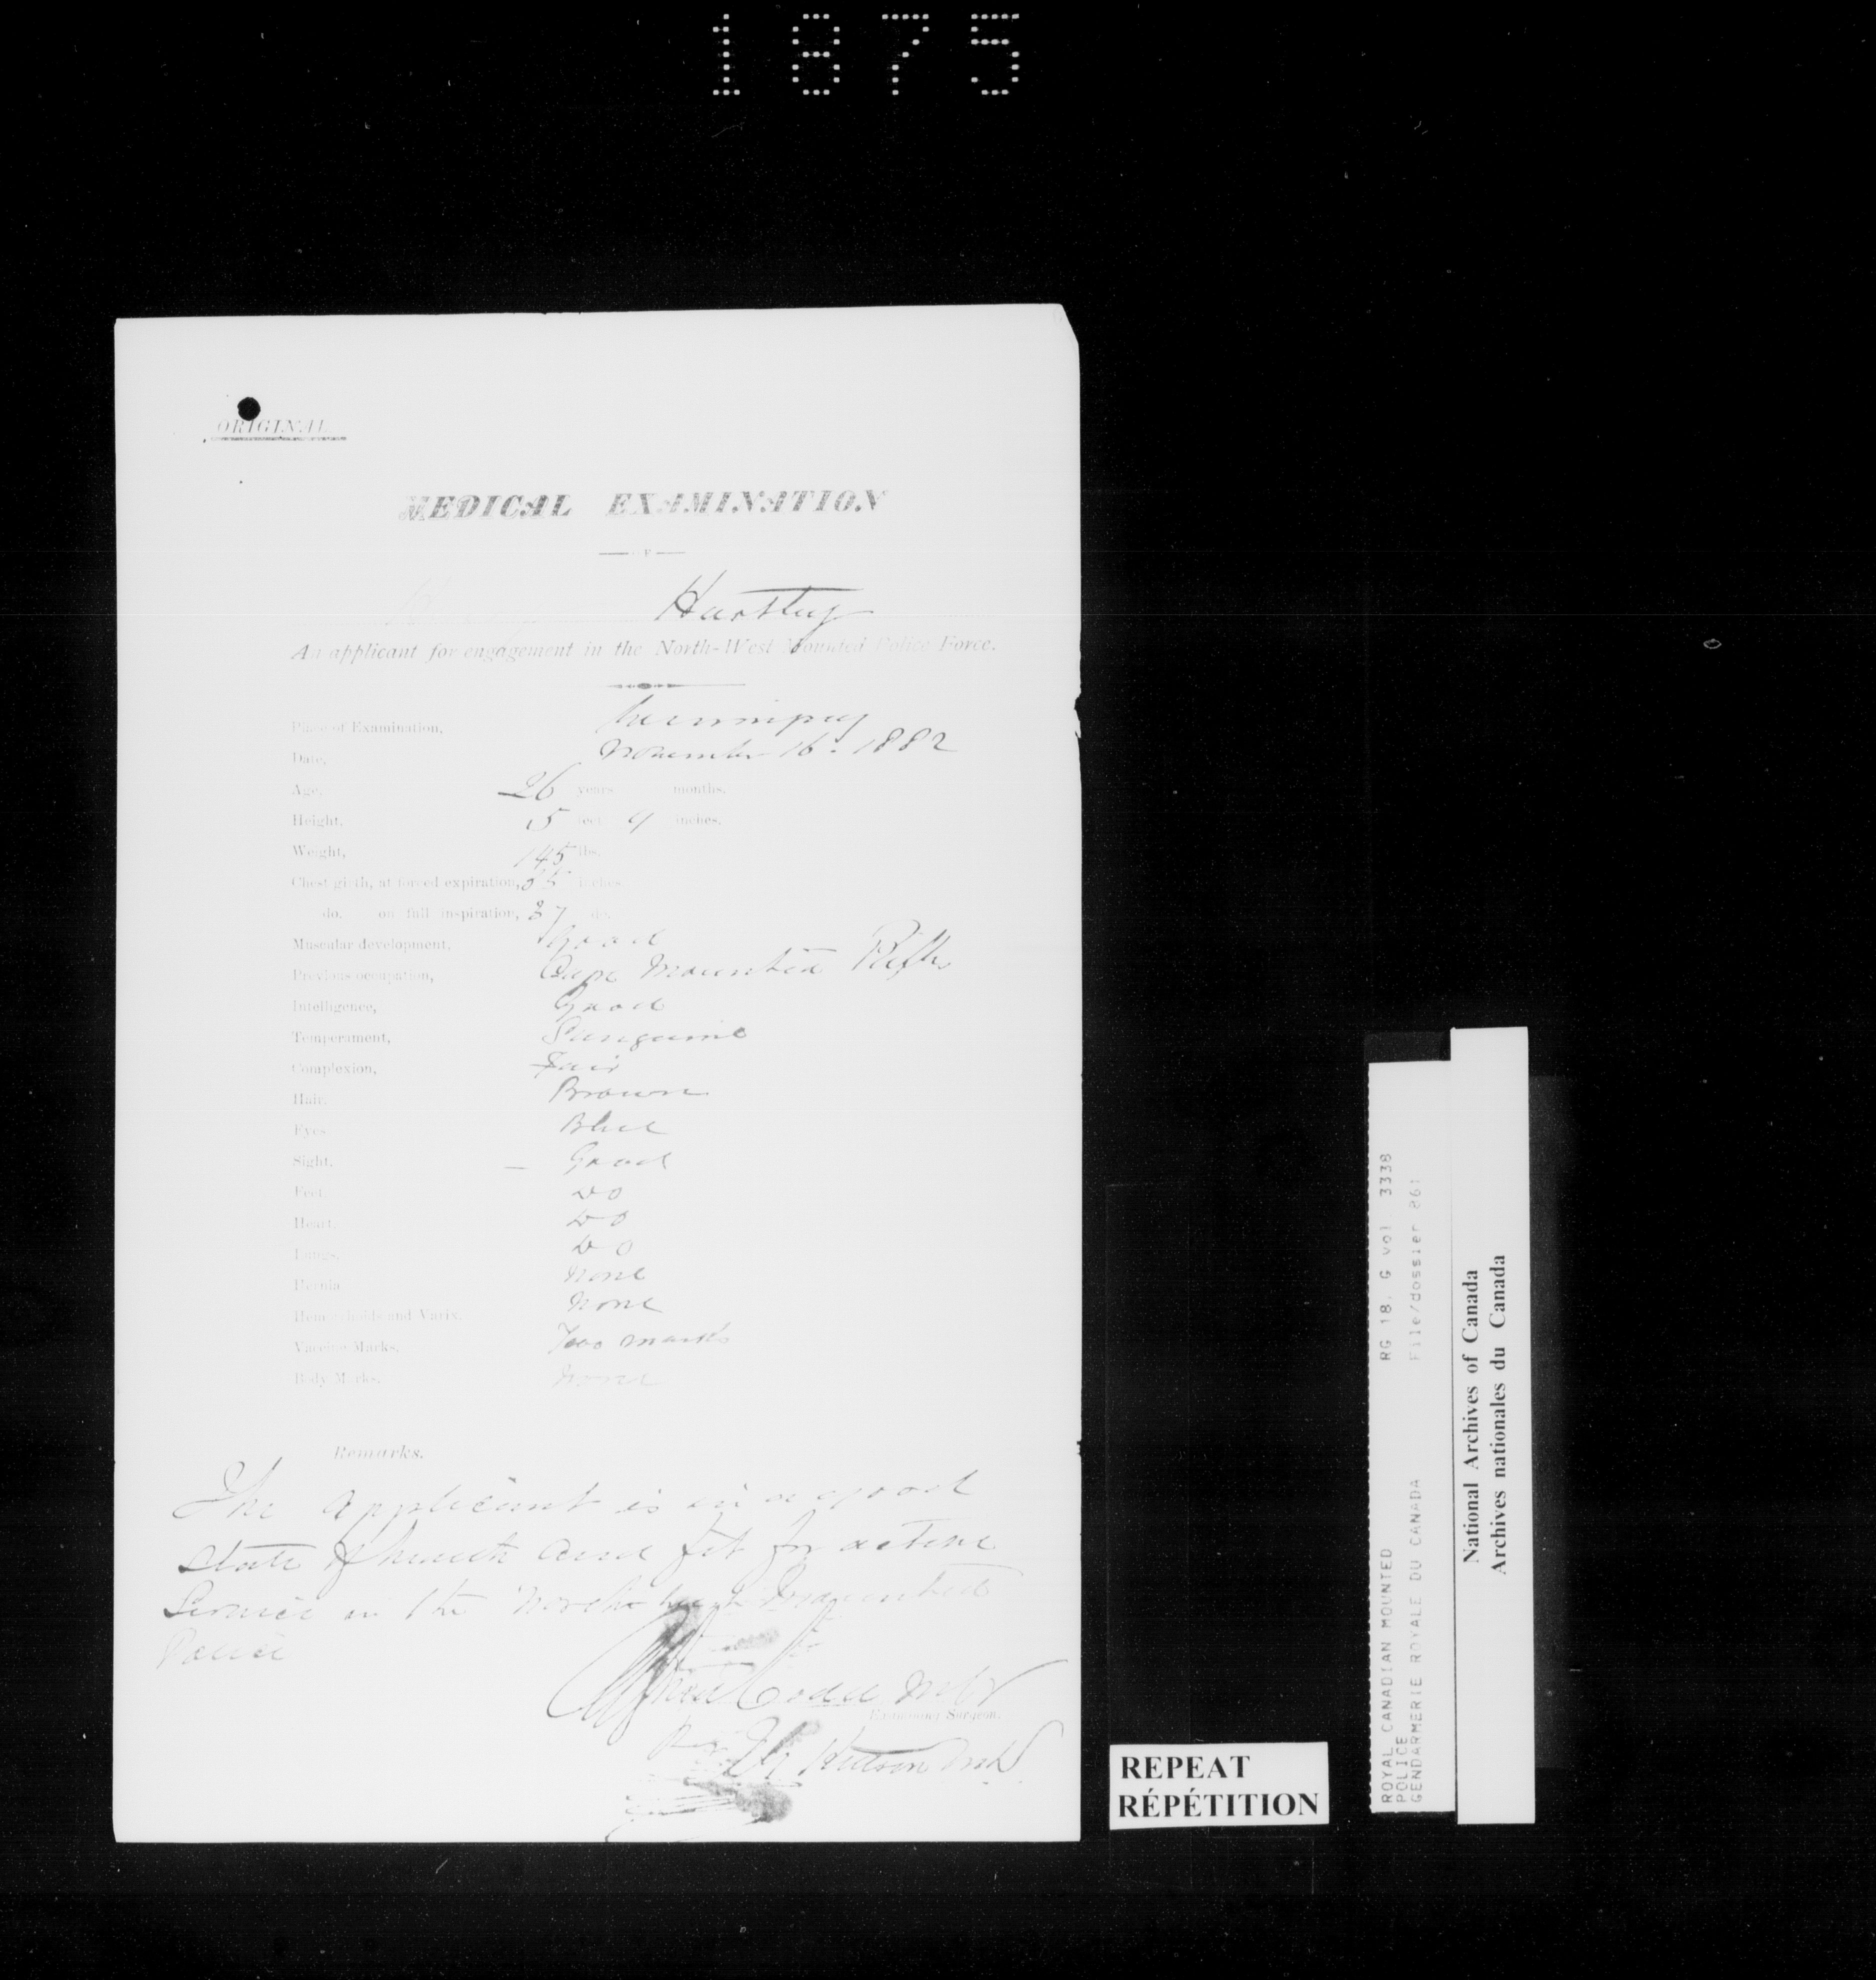 1875
ORIGINAL
MEDICAL EXAMINATION
Hartley
An applicant for engagement in the North-West Mounted Police Force.
Place of Examination, Winnipeg
Date, November 16. 1882
Age, 26 years months.
Height, 5 feet 9 inches.
Weight, 145 lbs.
Chest girth, at forced expiration, 35 inches
do. on full inspiration, 37 do.
Muscular development, Good
Previous occupation, Cape Mounted Rifles
Intelligence, Good
Temperament, Sanguine
Complexion, Fair
Hair, Brown
Eyes Blue
Sight, — Good
Feet Do
Heart, Do
Lungs, Do
Hernia None
Hemorrhoids and Varix, None
Vaccine Marks, Two marks
Body Marks, None
Remarks.
The applicant is in a good
state of health and fit for active
Service in the North West Mounted
Police
Codd
Examining Surgeon.
REPEAT
RÉPÉTITION
ROYAL CANADIAN MOUNTED RG 18, G vol 3338
POLICE
GENDARMERIE ROYALE DU CANADA File/dossier 861
National Archives of Canada
Archives nationales du Canada